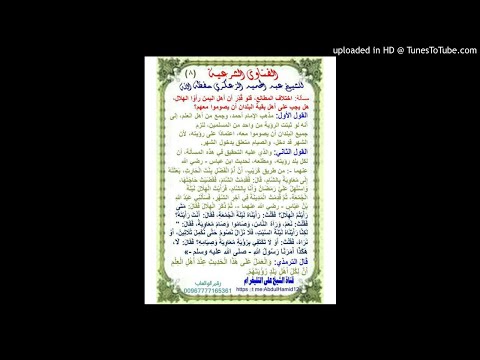 uploaded in HD @ TunesToTube.com
الفتاوى الشرعية (٨)
للشيخ عبد الحميد الزعكري حفظه الله
مسألة: اختلاف المطالع، فلو قُدّر أن أهل اليمن رأوا الهلال،
هل يجب على أهل بقية البلدان أن يصوموا معهم؟
القول الأول: مذهب الإمام أحمد، وجمع من أهل العلم، إلى
أنه لو ثبتت الرؤية من واحد من المسلمين، لزم
جميع البلدان أن يصوموا معه، اعتمادًا على رؤيته، لأن
الشهر قد دخل، والصيام متعلق بدخول الشهر.
القول الثاني: والذي عليه التحقيق في هذه المسألة، أن
لكل بلد رؤيته، ومطلعه، لحديث ابن عباس - رضي الله
عنهما -: من طريق كريب، أن أم الفضل بنت الحارث، بعثته
إلى معاوية بالشام، قال: فقدمت الشام، فقضيت حاجتها،
واستهل علي رمضان وأنا بالشام، فرأيت الهلال ليلة
الجمعة، ثم قدمت المدينة في آخر الشهر، فسألني عبد الله
بن عباس - رضي الله عنهما -، ثم ذكر الهلال فقال: متى
رأيتم الهلال؟ فقلت: رأيناه ليلة الجمعة، فقال: أنت رأيته؟
فقلت: نعم، ورآه الناس، وصاموا وصام معاوية، فقال: "
لكنا رأيناه ليلة السبت، فلا نزال نصوم حتى نكمل ثلاثين، أو
نراه، فقلت: أو لا تكتفي برؤية معاوية وصيامه؟ فقال: لا،
هكذا أمرنا رسول الله - صلى الله عليه وسلم - »
قال الترمذي: والعمل على هذا الحديث عند أهل العلم
أن لكل أهل بلد رؤيتهم.
قناة الشيخ على التليقرام
https : t.me/AbdulHamid12
رقم الواتساب
00967777165361